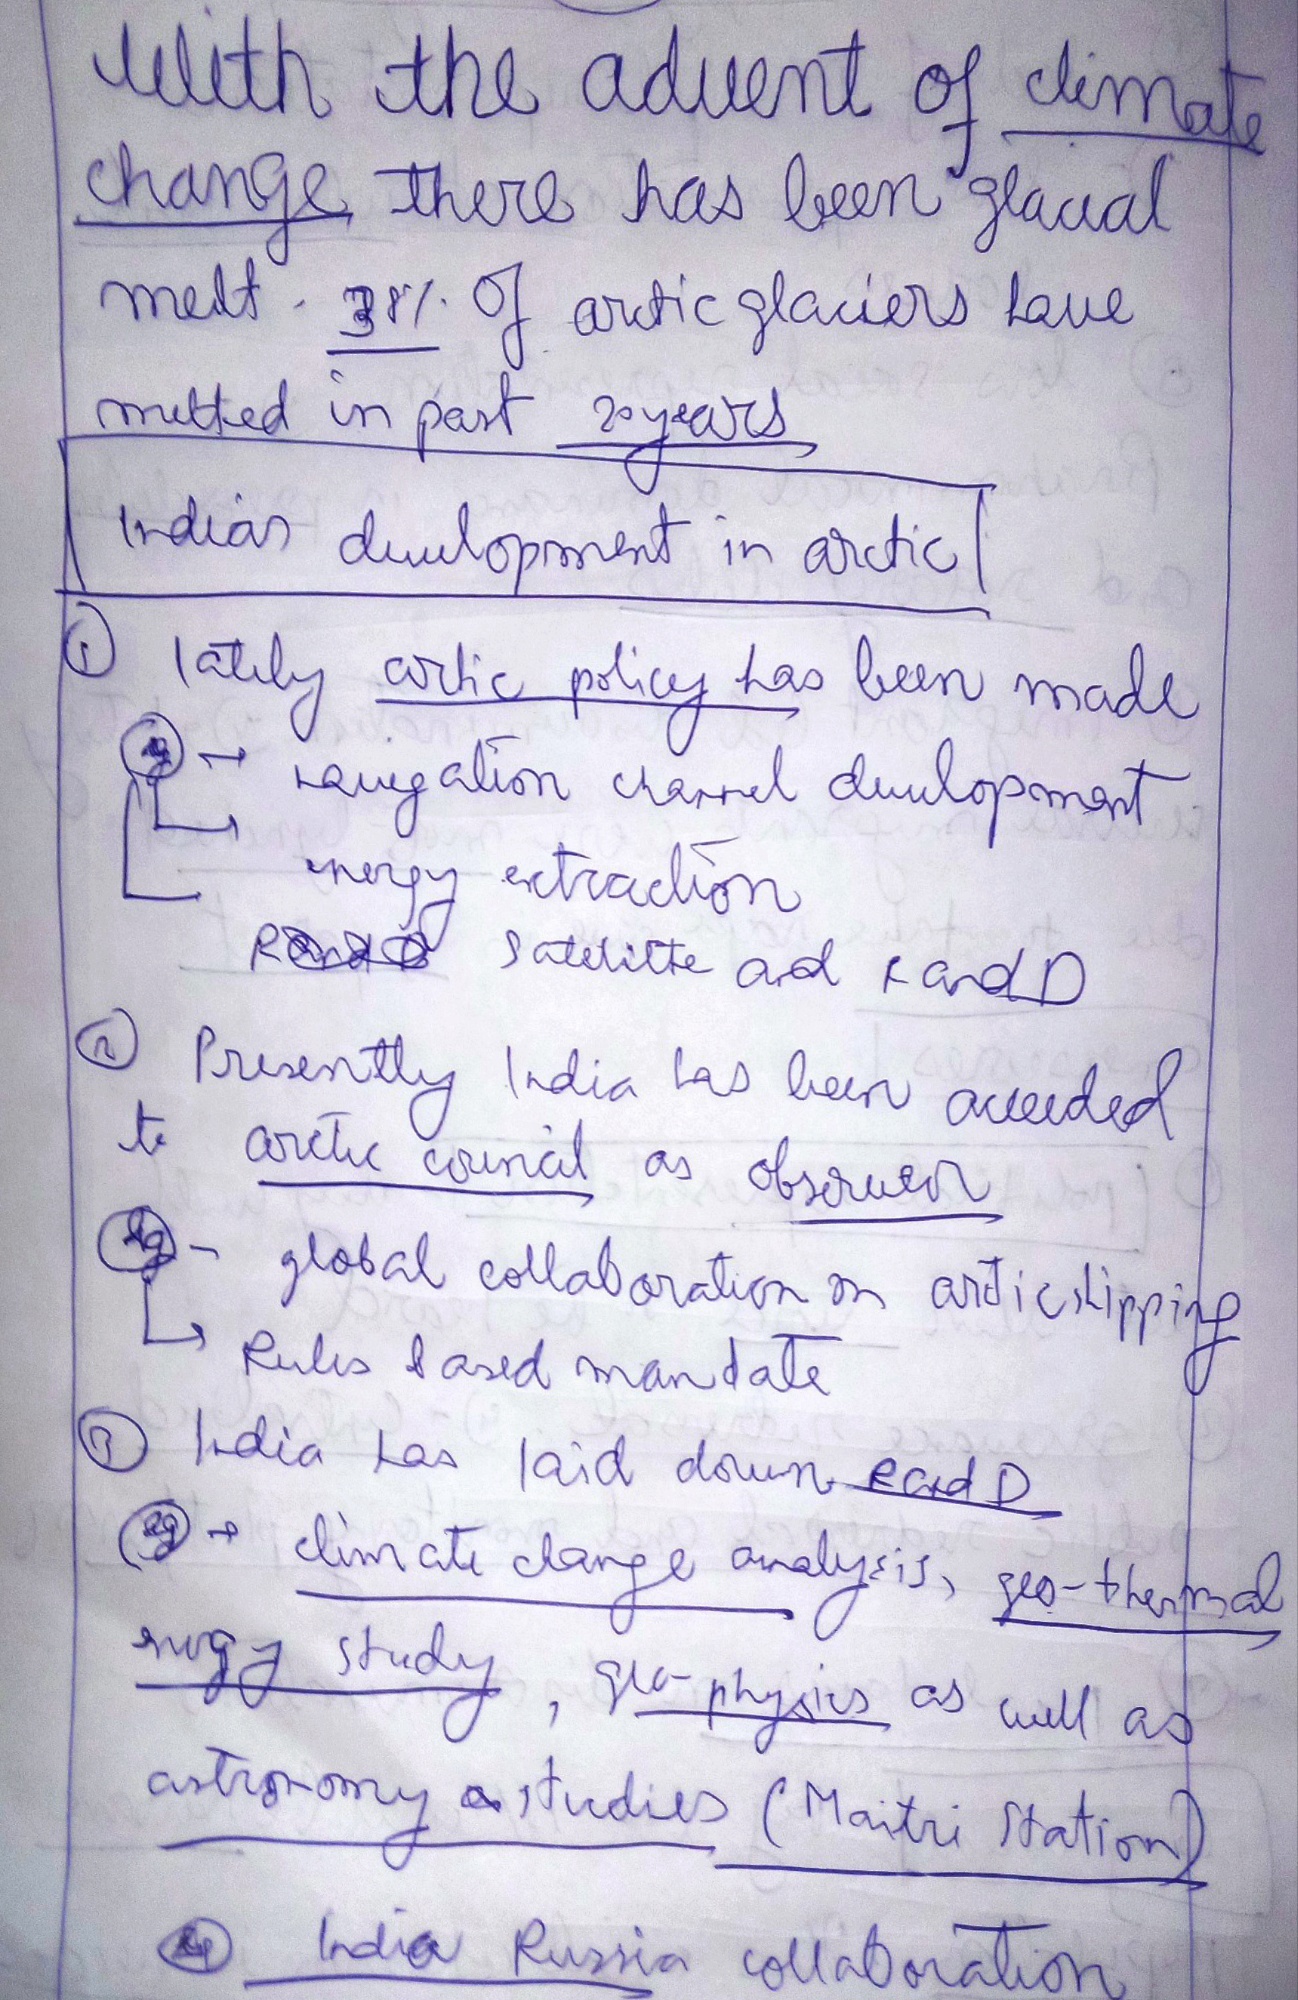 With the advent of climate
change there has been glacial
melt. 38% of arctic glaciers have
melted in past 20 years
India's development in arctic
① lately arctic policy has been made
eg → navigation channel development
energy extraction
Satelitte and R and D
② Presently India has been acceeded
to arctic council as observer
eg - global collaboration on arctic shipping
→ Rules based mandate
③ India has laid down R and D
eg → climate change analysis, geo-thermal
enrgy study, geo-physics as well as
astronomy studies (Maitri Station)
④ India Russia collaboration